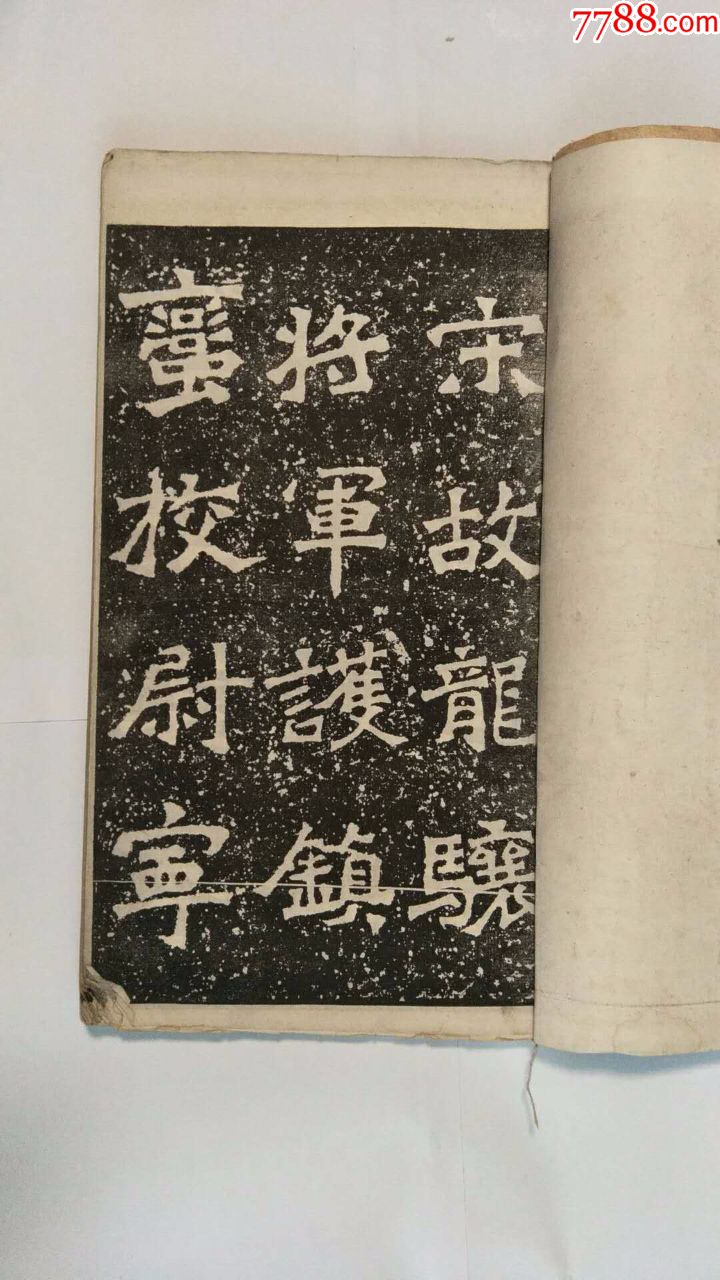 宋故龍驤
將軍護鎮
蠻挍尉寧
7788.com